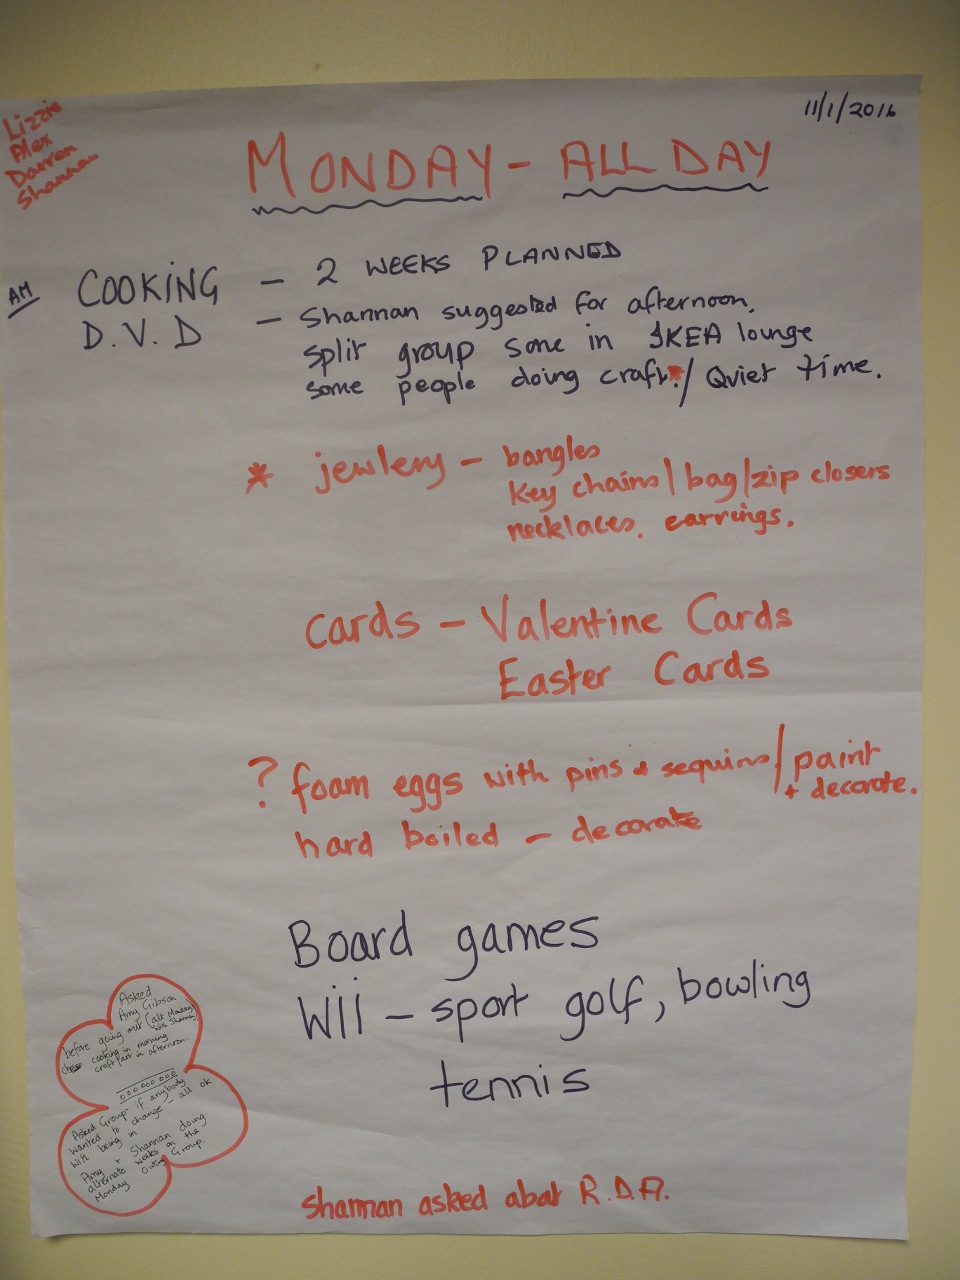 11/1/2016
Lizzie
Alex
Darren
Shannan
MONDAY - ALL DAY
AM COOKING - 2 WEEKS PLANNED
D.V.D - Shannan suggested for afternoon.
split group some in IKEA lounge
some people doing craft*/ Quiet time.
* jewlery - bangles
key chains / bag/zip closers
necklaces. earrings.
cards - Valentine Cards
Easter Cards
? foam eggs with pins + sequins / paint
+ decorate.
hard boiled - decorate
Board games
Wii - sport golf, bowling
tennis
Asked
Amy Gibson
before going out (alt Monday)
with Shannan
cooking in morning
craft/art in afternoon.
Asked Group if anybody
wanted to change - all ok
with being in
Amy + Shannan doing
alternate weeks on the
Monday Outing Group.
Shannan asked abat R.D.A.